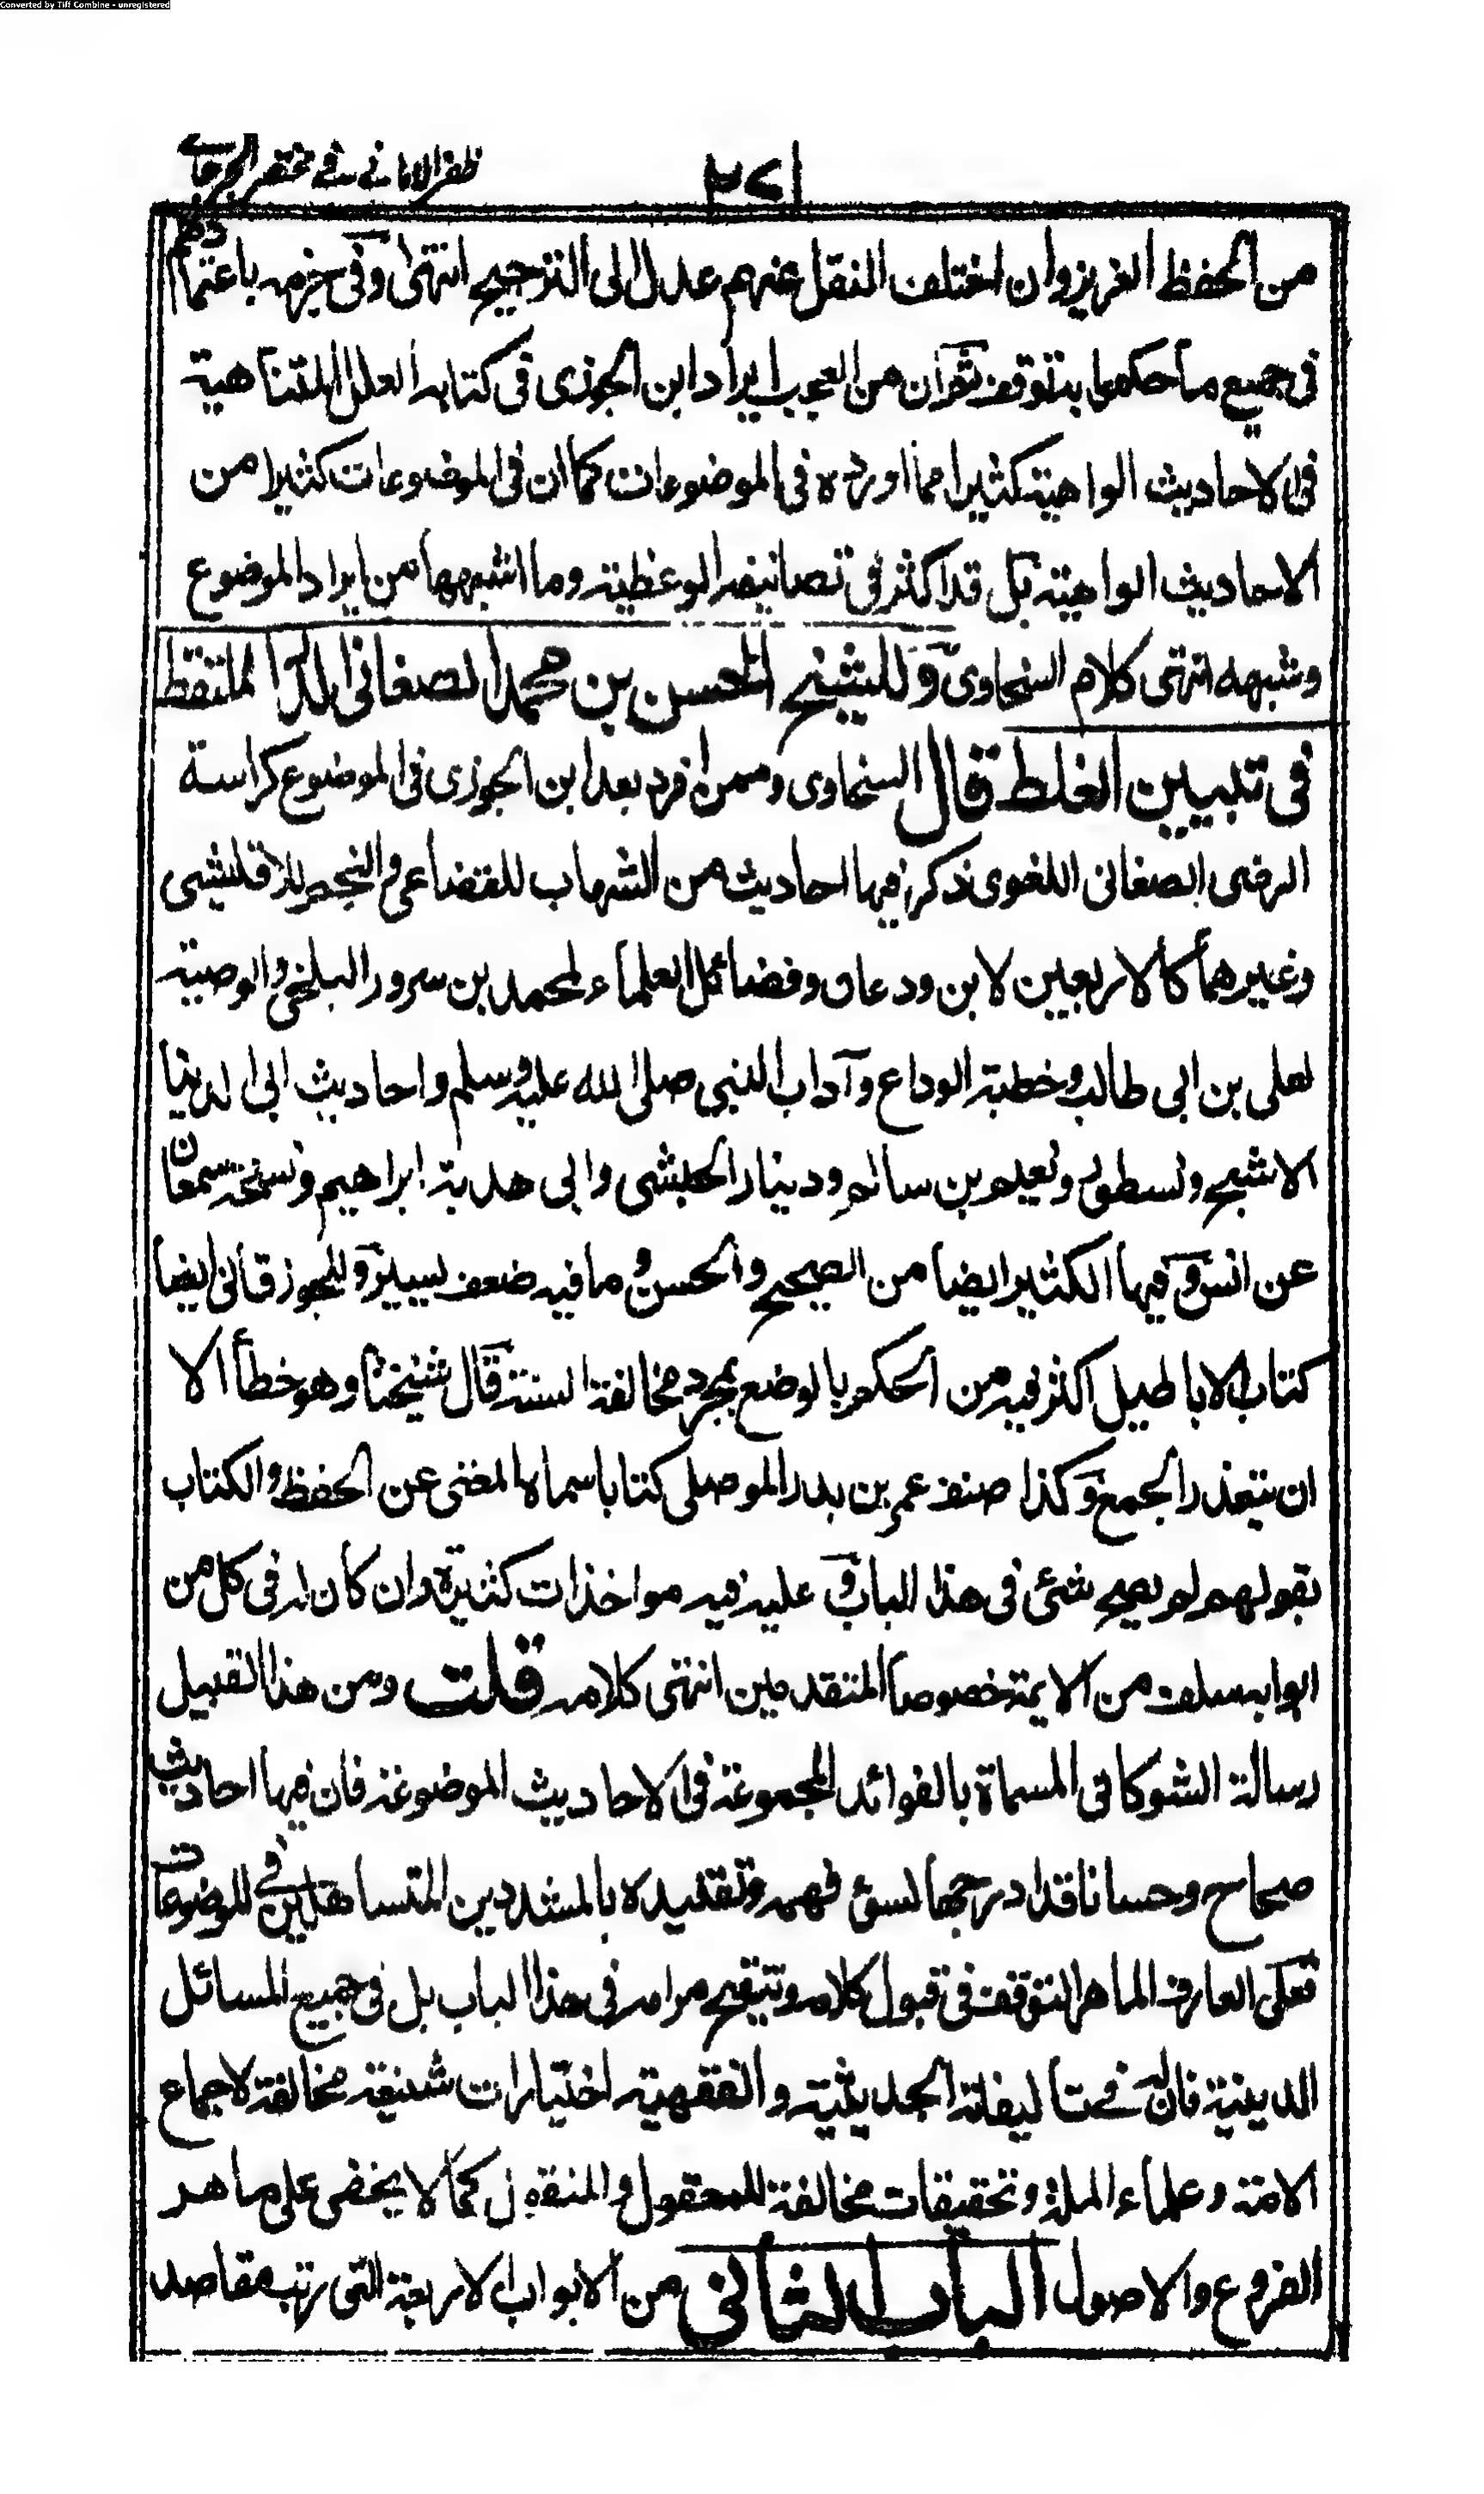 Converted by Tiff Combine - unregistered
٢٧١
ظفر الامانی فی مختصر الجرجانی
من الحفظ الغزير وان اختلف النقل عنهم عدل الى الترجيح انتهى وفى جزمه باعتمادهم
فى جميع ما حكموا به توقف ثم ان من العجب ايراد ابن الجوزى فى كتابه العلل المتناهية
فى الاحاديث الواهية كثيرا مما اورده فى الموضوعات كما ان فى الموضوعات كثيرا من
الاحاديث الواهية بل قد اكثر فى تصانيفه الوعظية وما اشبهها من ايراد الموضوع
وشبهه انتهى كلام السخاوى وللشيخ الحسن بن محمد الصغانى الدر الملتقط
فى تبيين الغلط قال السخاوى وممن افرد بعد ابن الجوزى فى الموضوع كراسة
الرضى الصغانى اللغوى ذكر فيها احاديث من الشهاب للقضاعى والنجم للاقليشى
وغيرهما كالاربعين لابن ودعان وفضائل العلماء لمحمد بن سرور البلخى والوصية
لعلى بن ابى طالب وخطبة الوداع وآداب النبي صلى الله عليه وسلم واحاديث ابى الدنيا
الاشج ونسطور ونعيم بن سالم ودينار الحبشى وابى هدبة ابراهيم ونسخة سمعان
عن انس وفيها الكثير ايضا من الصحيح والحسن وما فيه ضعف يسير وللجوزقانى ايضا
كتاب الاباطيل اكثر فيه من الحكم بالوضع بمجرد مخالفة السنة قال شيخنا وهو خطأ الا
ان يتعذر الجمع وكذا صنف عمر بن بدر الموصلى كتابا سماه المغنى عن الحفظ والكتاب
بقولهم لم يصح شئ فى هذا الباب وعليه فيه مواخذات كثيرة وان كان له فى كل من
ابوابه سلف من الايمة خصوصا المتقدمين انتهى كلامه قلت ومن هذا القبيل
رسالة الشوكانى المسماة بالفوائد المجموعة فى الاحاديث الموضوعة فان فيها احاديث
صحاح وحسانا قد ادرجها لسوء فهمه وتقليده بالمشددين المتساهلين فى الموضوعات
فعلى العارف الماهر التوقف فى قبول كلامه وتنقيح مرامه فى هذا الباب بل فى جميع المسائل
الدينية فان له فى تاليفاته الحديثية والفقهية اختيارات شنيعة مخالفة لاجماع
الامة وعلماء الملة وتحقيقات مخالفة للمعقول والمنقول كما لا يخفى على ماهر
الفروع والاصول الباب الثانى من الابواب الاربعة التى رتب مقاصد